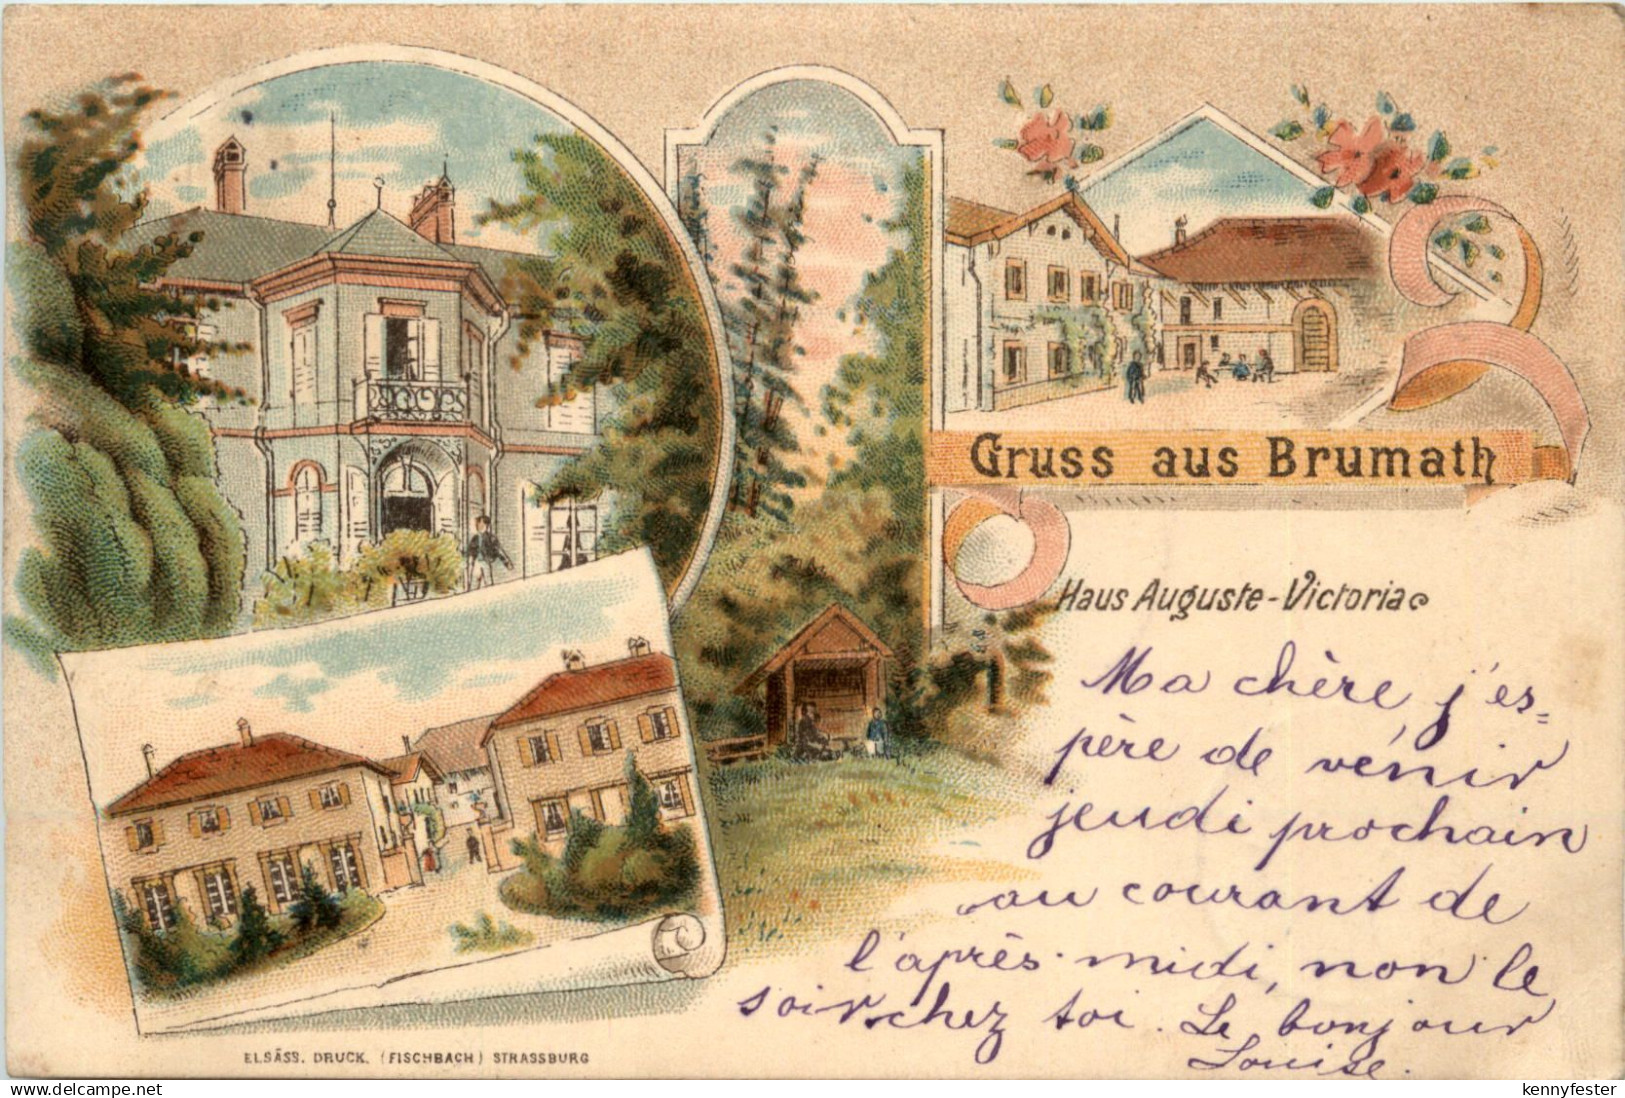 Gruss aus Brumath
Haus Auguste-Victoria
Ma chère, j'es=
père de vénir
jeudi prochain
au courant de
l'après-midi, non le
soir chez toi. Le bonjour
Louise.
ELSÄSS. DRUCK. (FISCHBACH) STRASSBURG
www.delcampe.net
kennyfester